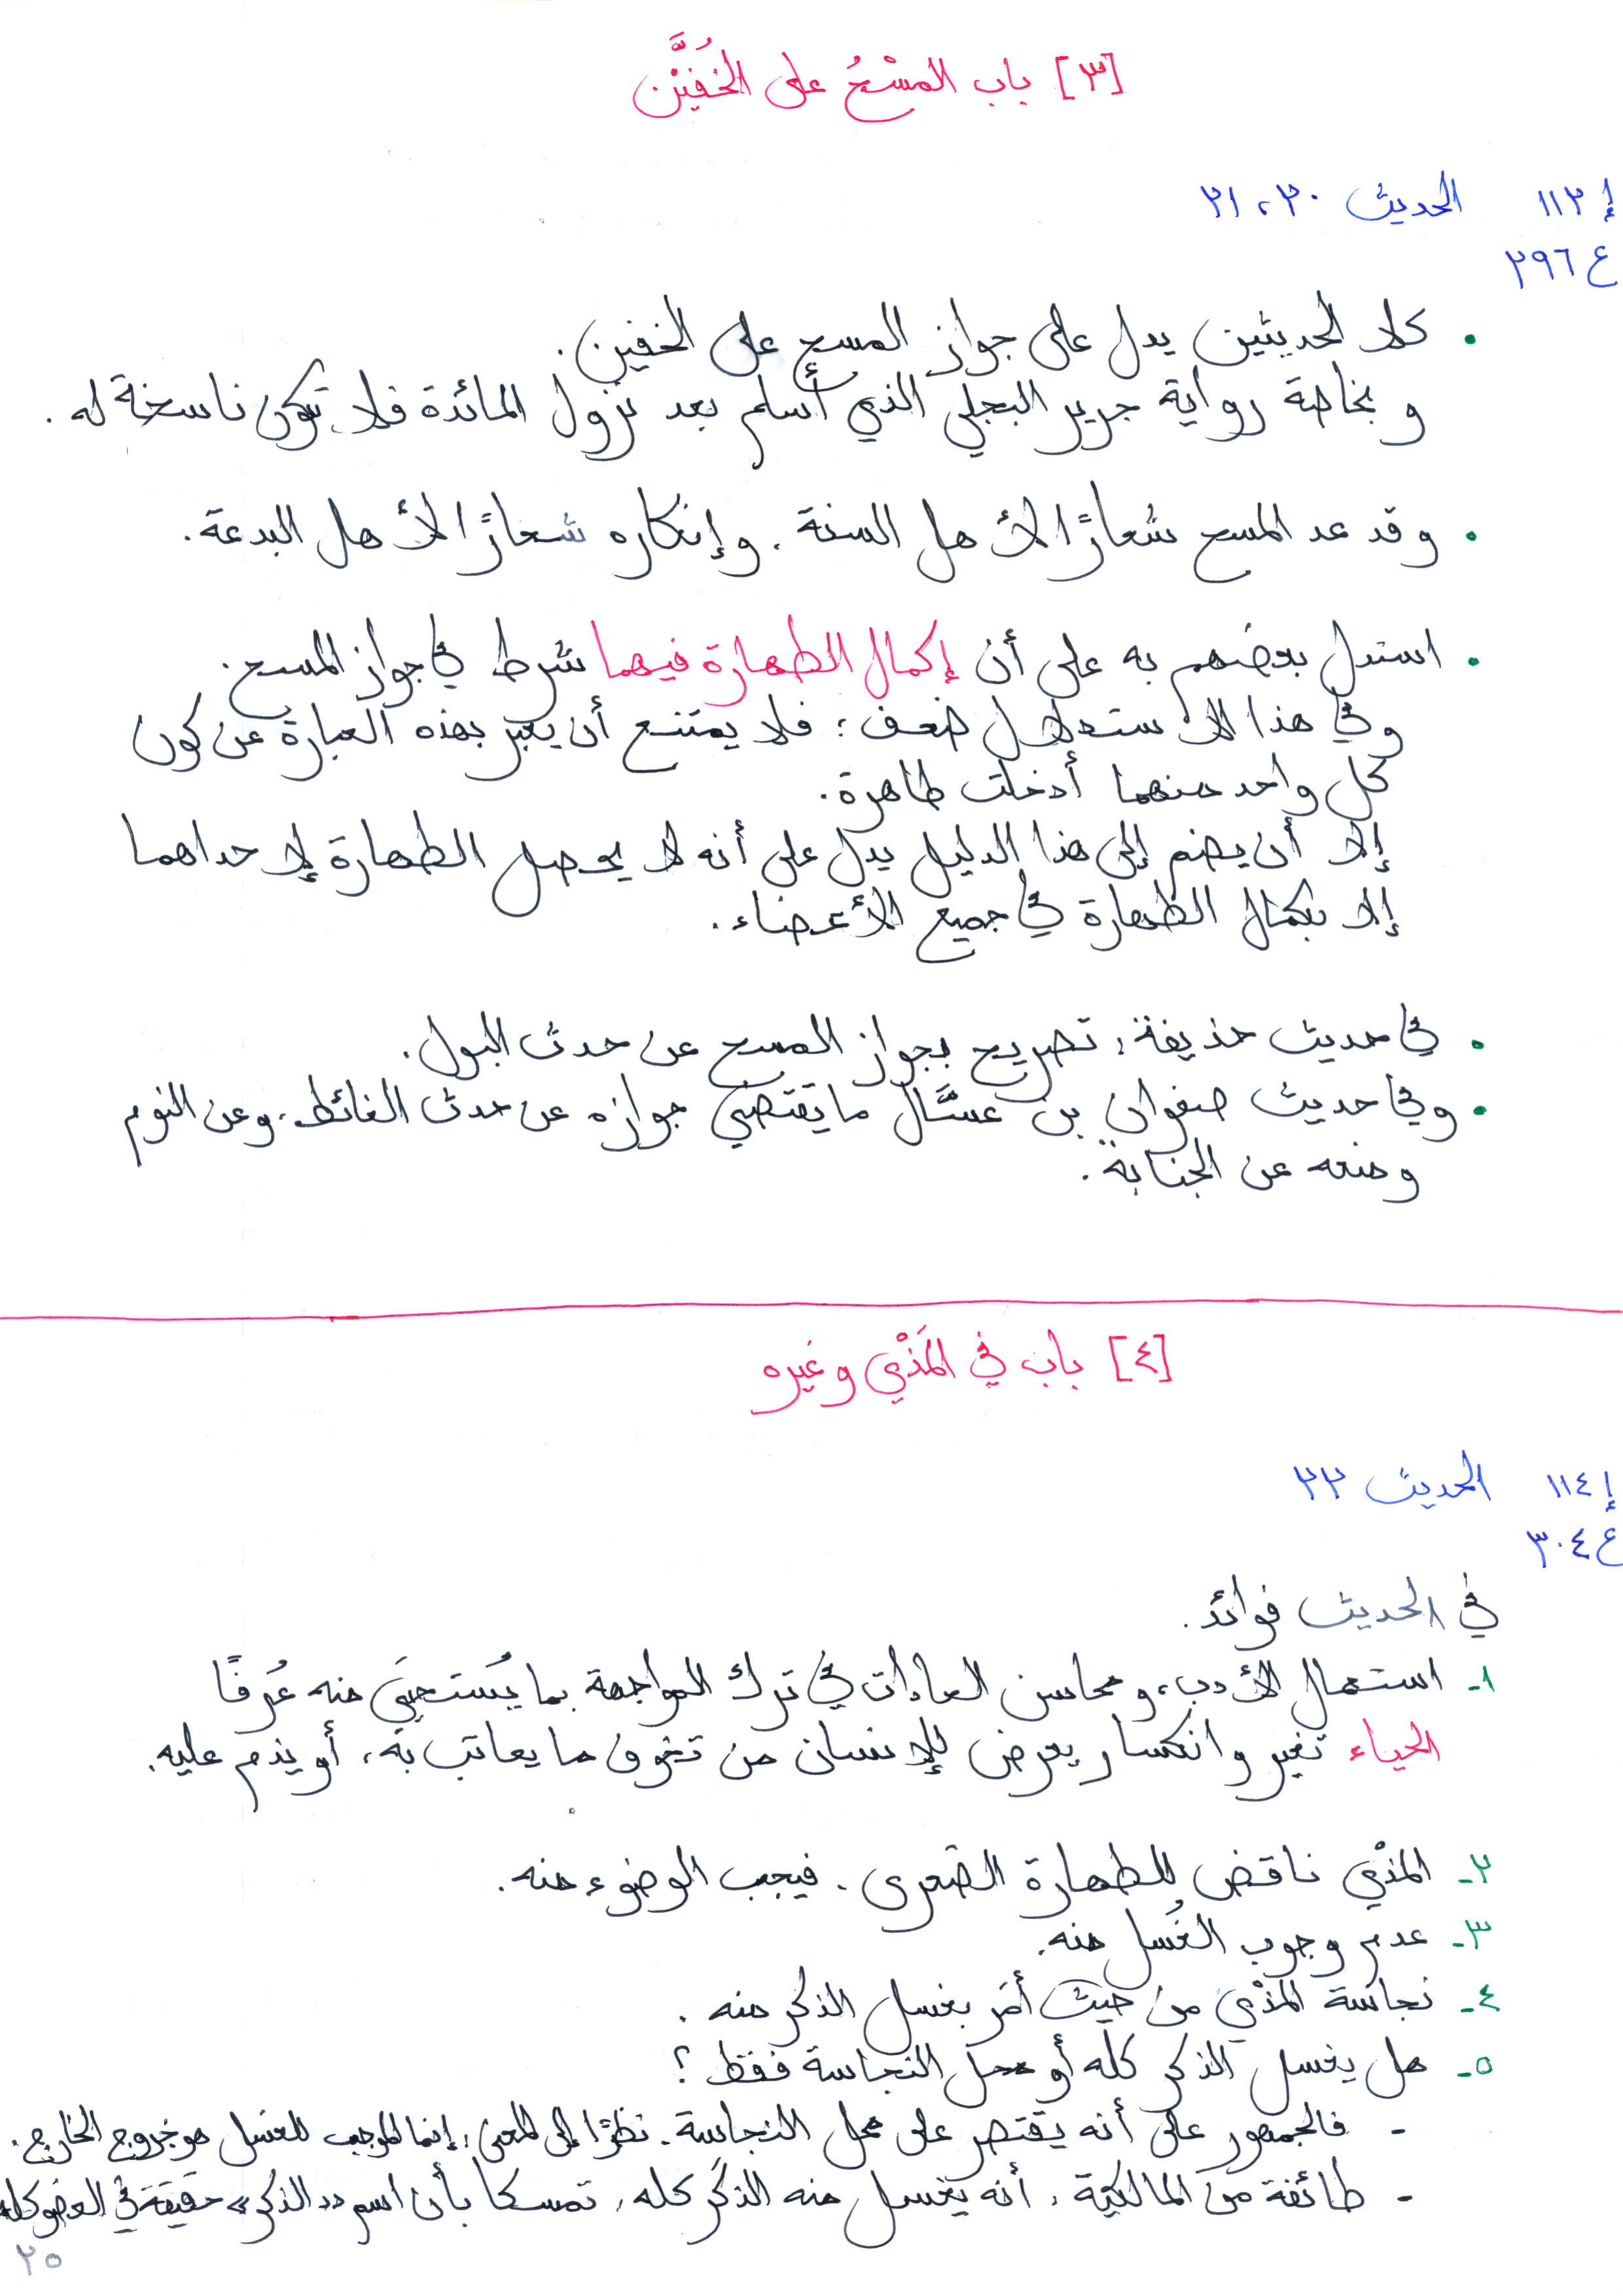 [٣] باب المسْحُ على الخُفَّيْن
إ ١١٢ الحديث ٢٠، ٢١
ع ٢٩٦
• كلا الحديثين يدل على جواز المسح على الخفين.
وبخاصة رواية جرير البجلي الذي أسلم بعد نزول المائدة فلا تكون ناسخة له.
• وقد عد المسح شعارًا لأهل السنة. وإنكاره شعارًا لأهل البدعة.
• استدل بعضهم به على أن إكمال الطهارة فيهما شرط في جواز المسح.
وفي هذا الاستدلال ضعف؛ فلا يمتنع أن يعبر بهذه العبارة عن كون
كل واحد منهما أدخلت طاهرة.
إلا أن يضم إلى هذا الدليل يدل على أنه لا يحصل الطهارة لإحداهما
إلا بكمال الطهارة في جميع الأعضاء.
• في حديث حذيفة: تصريح بجواز المسح عن حدث البول.
• وفي حديث صفوان بن عسَّال ما يقتضي جوازه عن حدث الغائط. وعن النوم
ومنعه عن الجنابة.
[٤] باب في المَذْي وغيره
إ ١١٤ الحديث ٢٢
ع ٣٠٤
في الحديث فوائد.
١- استعمال الأدب، ومحاسن العادات في ترك المواجهة بما يُستحيَى منه عُرفًا
الحياء تغير وانكسار يعرض للإنسان من تخوف ما يعاتب به، أو يذم عليه.
٢- المذْي ناقض للطهارة الصغرى. فيجب الوضوء منه.
٣- عدم وجوب الغُسل منه.
٤- نجاسة المذْي من حيث أمَر بغسل الذكر منه.
٥- هل يغسل الذكر كله أو محل النجاسة فقط؟
- فالجمهور على أنه يقتصر على محل النجاسة. نظرًا إلى المعنى؛ إنما الموجب للغسل هو خروج الخارج.
- طائفة من المالكية، أنه يغسل منه الذكَر كله، تمسكا بأن اسم «الذكر» حقيقة في العضو كله
٢٥